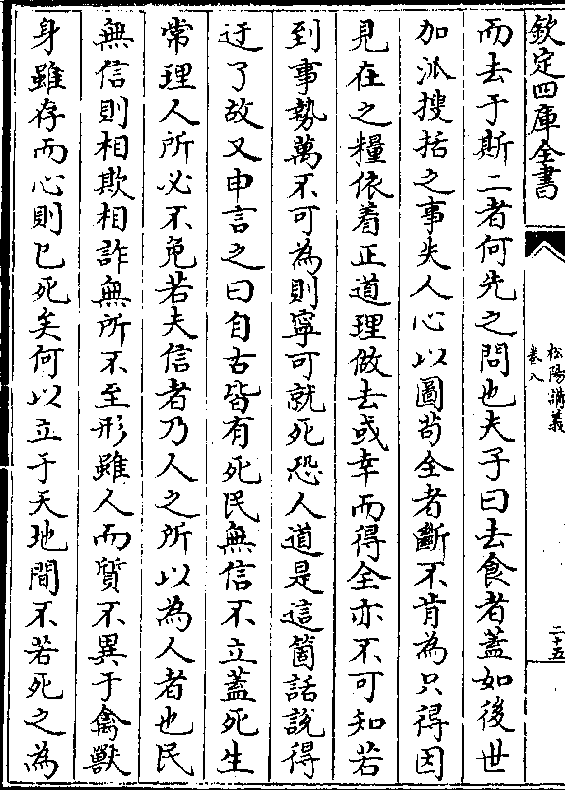 欽定四庫全書
松陽講義
卷八
二十五
而去于斯二者何先之問也夫子曰去食者蓋如後世
加派搜括之事失人心以圖茍全者斷不肯為只得因
見在之糧依着正道理做去或幸而得全亦不可知若
到事勢萬不可為則寧可就死恐人道是這箇話說得
迂了故又申言之曰自古皆有死民無信不立蓋死生
常理人所必不免若夫信者乃人之所以為人者也民
無信則相欺相詐無所不至形雖人而質不異于禽獸
身雖存而心則已死矣何以立于天地間不若死之為